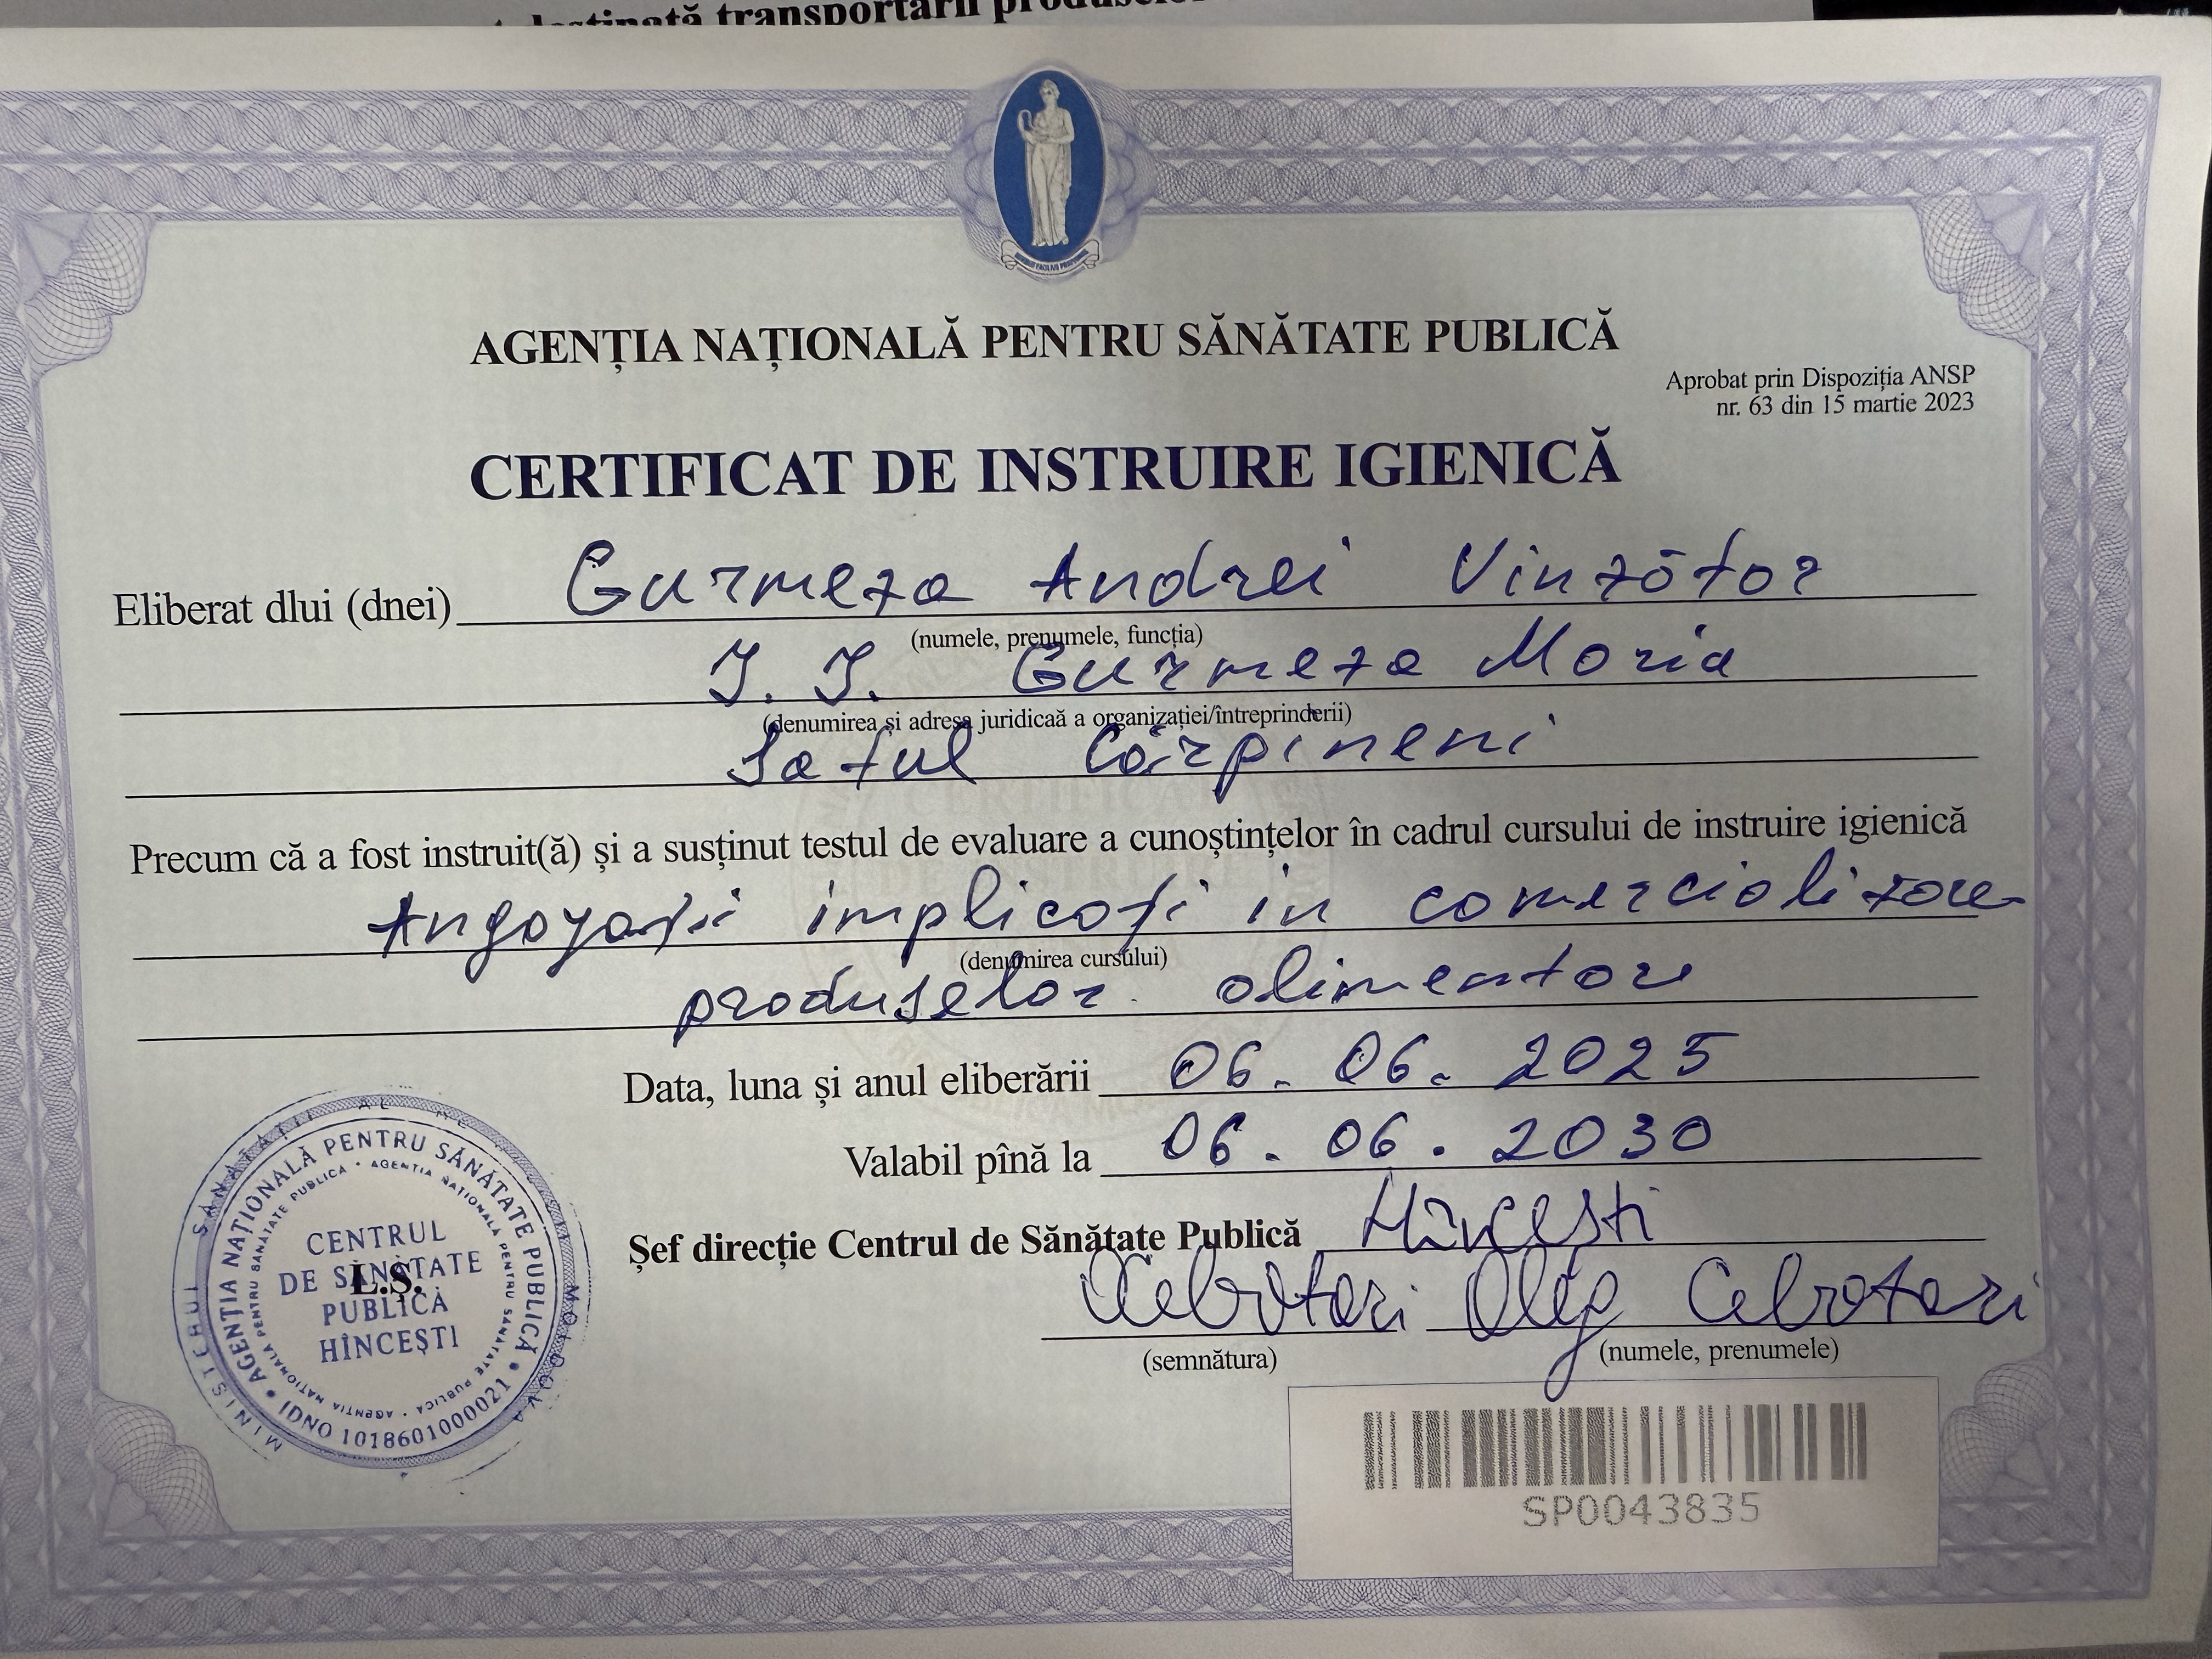 destinată transportării
AGENȚIA NAȚIONALĂ PENTRU SĂNĂTATE PUBLICĂ
Aprobat prin Dispoziția ANSP
nr. 63 din 15 martie 2023
CERTIFICAT DE INSTRUIRE IGIENICĂ
Eliberat dlui (dnei) Gurmeza Andrei Vinzător
(numele, prenumele, funcția)
I. I. Gurmeza Maria
(denumirea și adresa juridicaă a organizației/întreprinderii)
Satul Cărpineni
Precum că a fost instruit(ă) și a susținut testul de evaluare a cunoștințelor în cadrul cursului de instruire igienică
Angayații implicați in comercializare
(denumirea cursului)
produselor alimentare
Data, luna și anul eliberării 06. 06. 2025
Valabil pînă la 06. 06. 2030
Șef direcție Centrul de Sănătate Publică Hîncești
Cebotari Oleg Cebotari
(semnătura) (numele, prenumele)
MINISTERUL SĂNĂTĂȚII AL REPUBLICII MOLDOVA
AGENȚIA NAȚIONALĂ PENTRU SĂNĂTATE PUBLICĂ • IDNO 1018601000021 •
AGENȚIA NAȚIONALĂ PENTRU SĂNĂTATE PUBLICĂ • AGENȚIA NAȚIONALĂ PENTRU SĂNĂTATE PUBLICĂ •
CENTRUL
DE SĂNĂTATE
L.Ș.
PUBLICĂ
HÎNCEȘTI
SP0043835